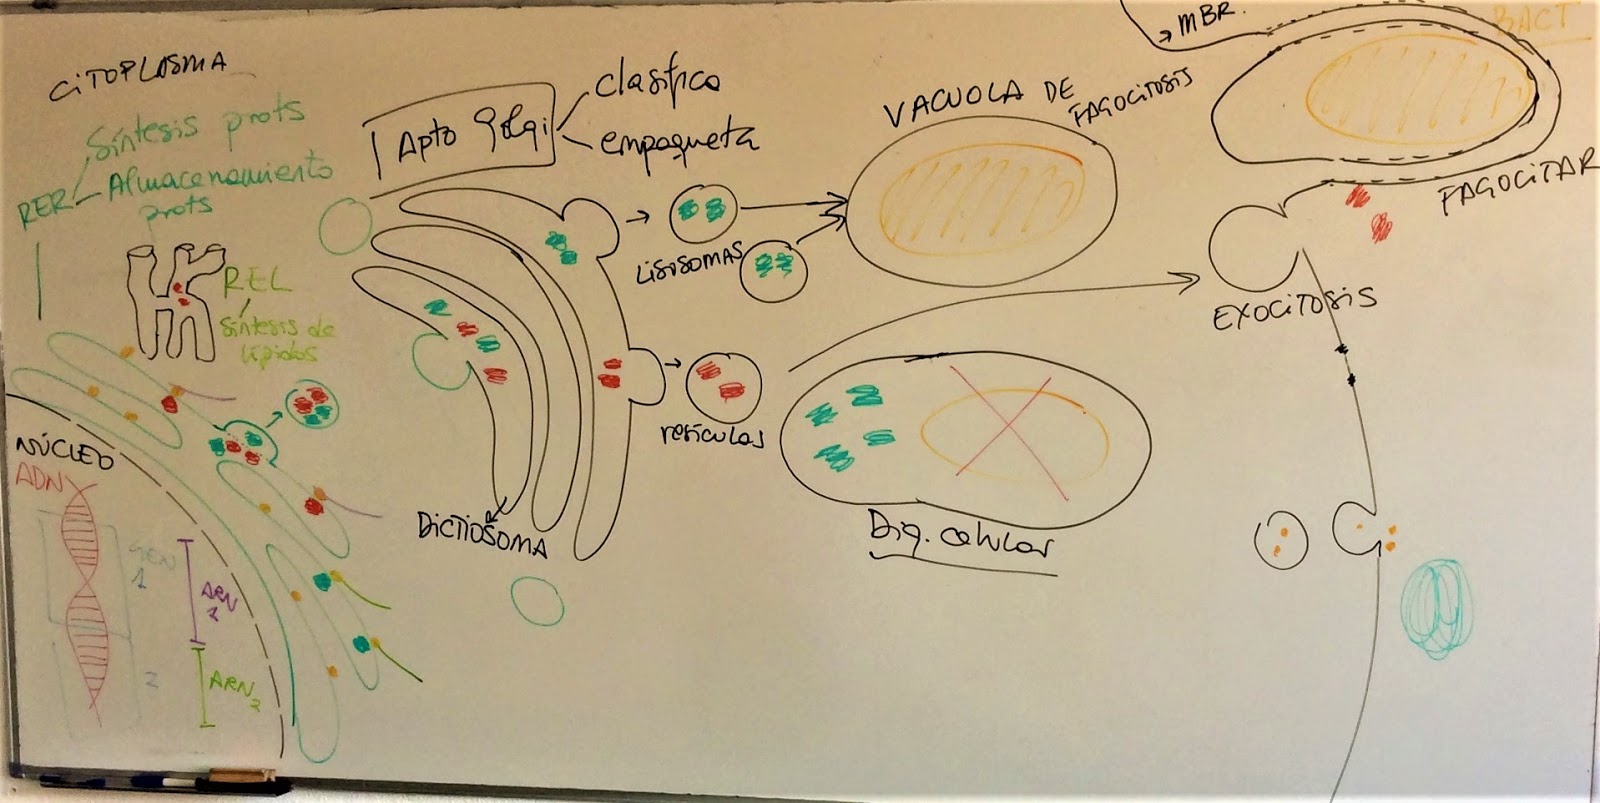 CITOPLASMA
RER
Síntesis prots
Almacenamiento
prots
REL
Síntesis de
lípidos
NÚCLEO
ADN
GEN
1
2
ARN
1
ARN2
Apto Golgi
clasifica
empaqueta
DICTIOSOMA
LISOSOMAS
vesículas
VACUOLA DE
FAGOCITOSIS
Dig. celular
MBR.
BACT
FAGOCITAR
EXOCITOSIS